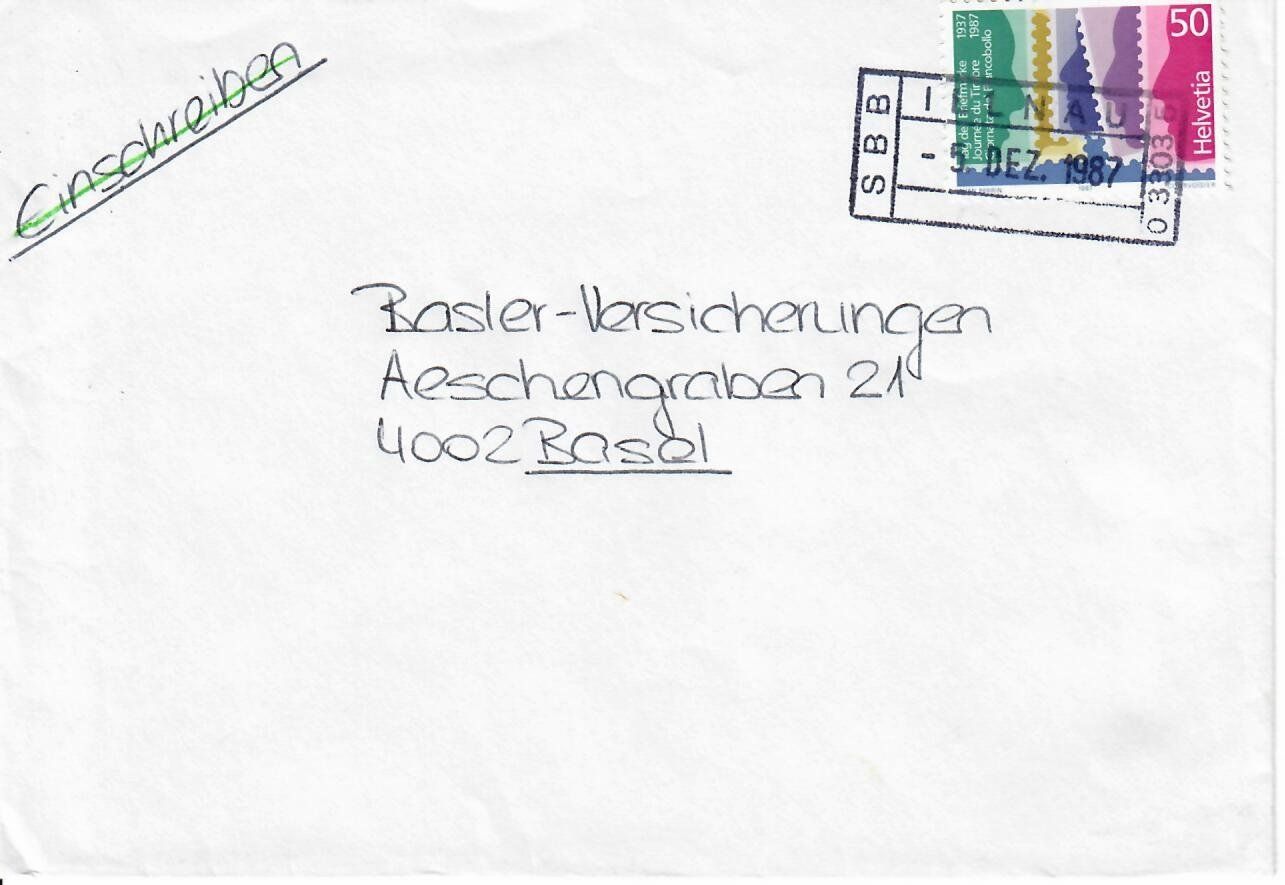 Einschreiben
50
Helvetia
1937
1987
Tag der Briefmarke
Journée du Timbre
Giornata del Francobollo
SBB
ILLNAU
- 3. DEZ. 1987
Basler-Versicherungen
Aeschengraben 21
4002 Basel